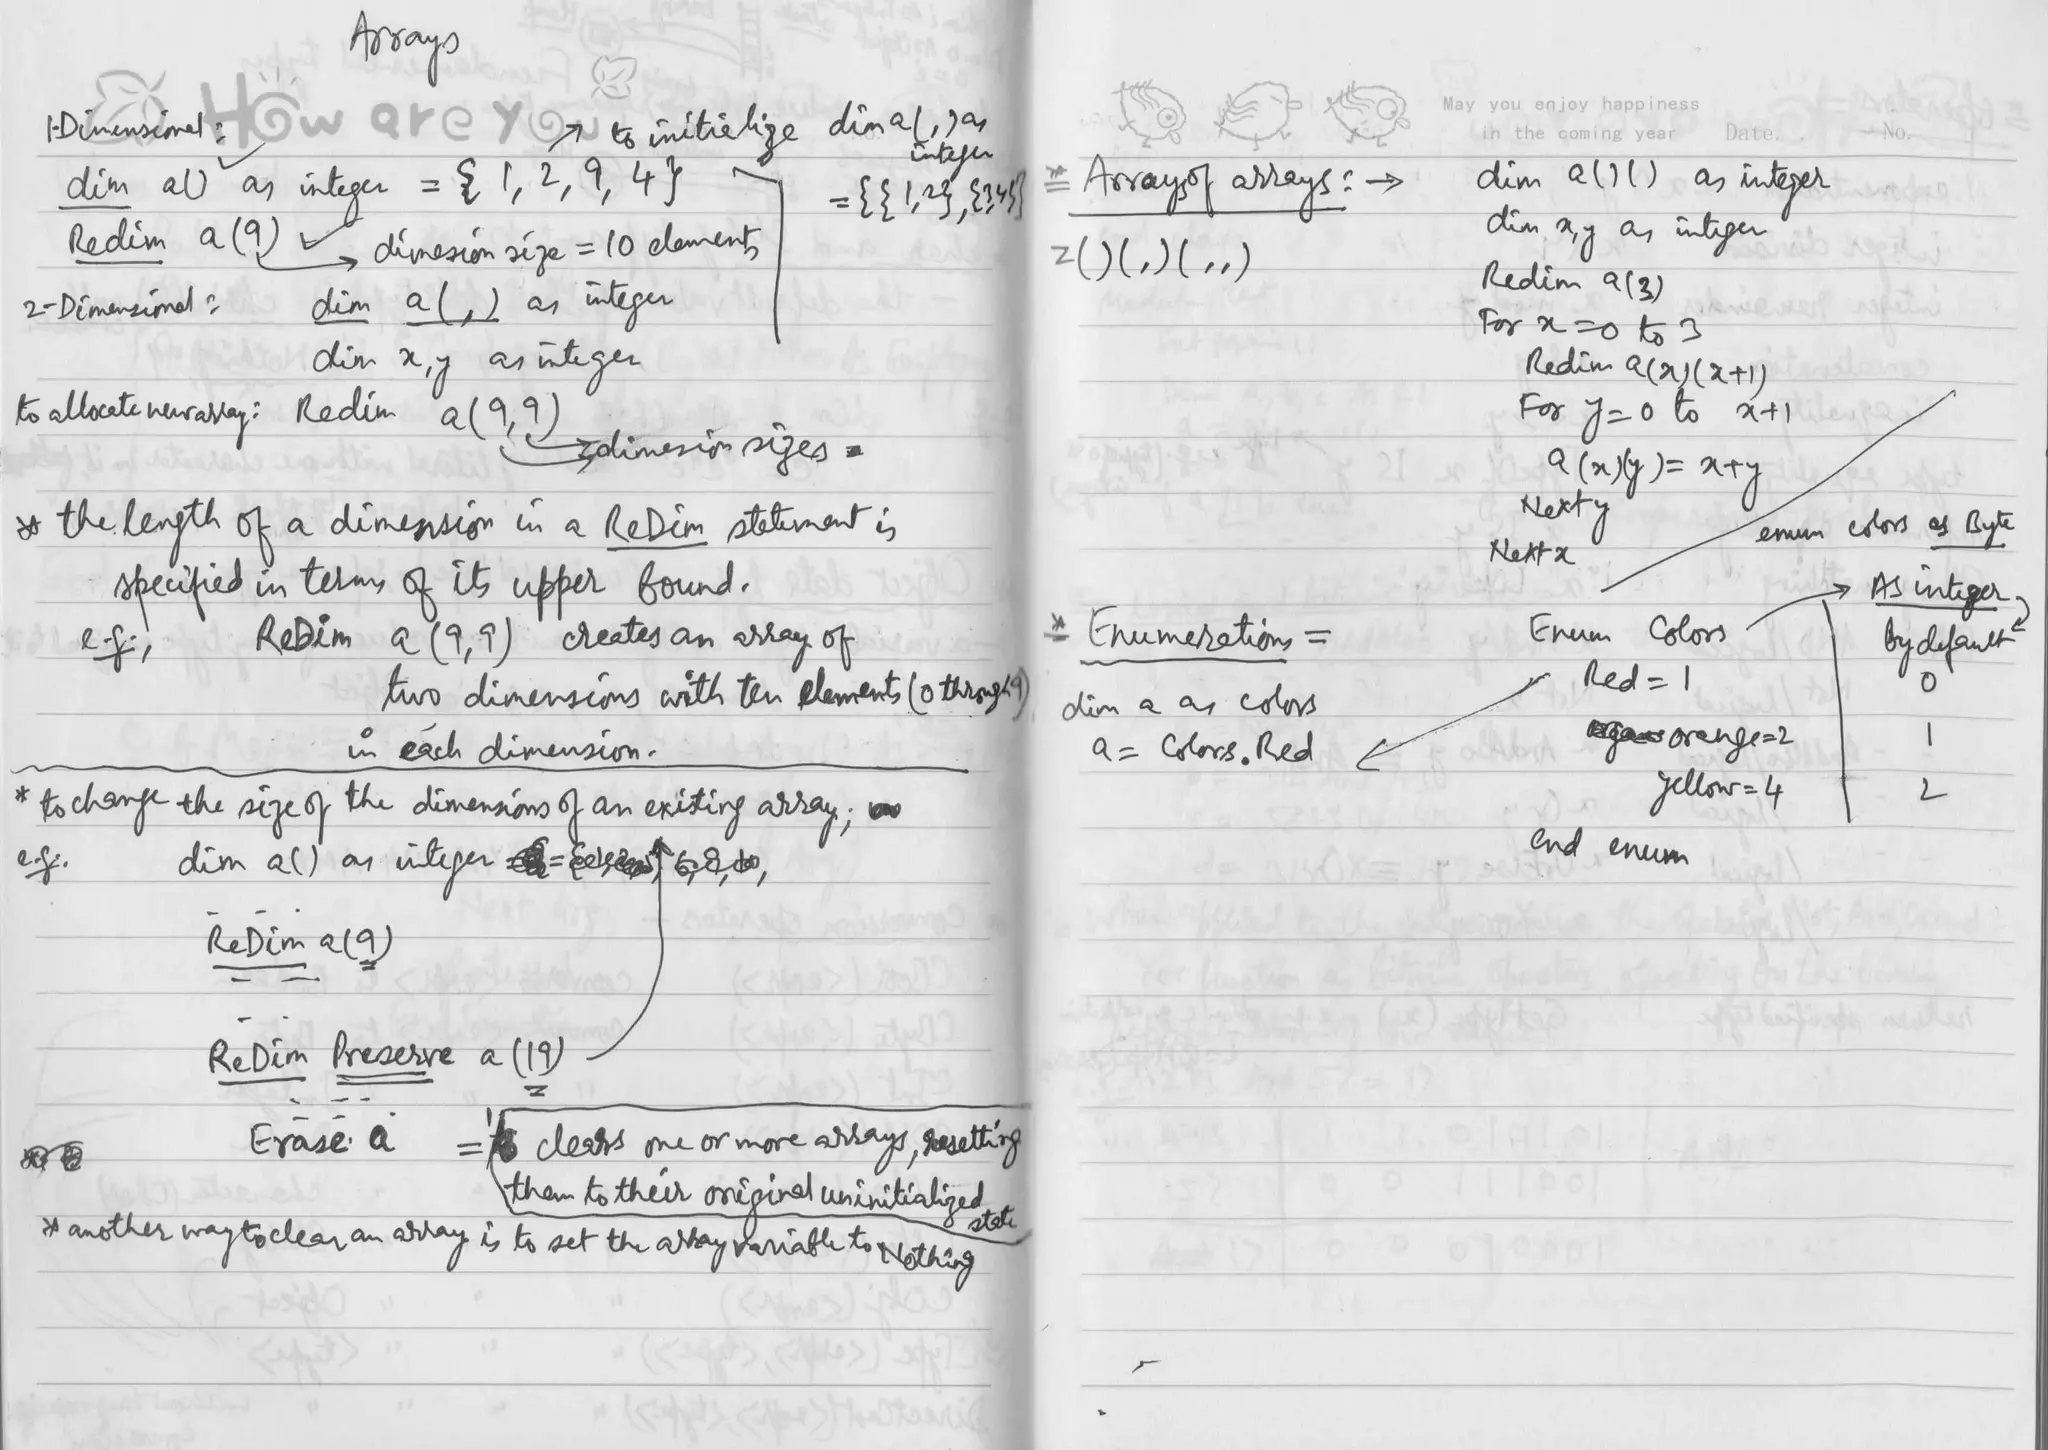 Arrays
How are You
1-Dimensional:
to initialize dim a(,) as
integer
dim a() as integer = { 1, 2, 9, 4 }
= {{1,2},{3,4}}
Redim a(9)
dimesion size = 10 elements
2-Dimensional: dim a(,) as integer
dim x,y as integer
to allocate new array: Redim a(9,9)
dimesion sizes
* the length of a dimension in a ReDim statement is
specified in terms of its upper bound.
e.g., ReDim a(9,9) creates an array of
two dimensions with ten elements (0 through 9)
in each dimension.
* to change the size of the dimensions of an existing array;
e.g. dim a() as integer
ReDim a(9)
ReDim Preserve a(19)
Erase a = clears one or more arrays, resetting
them to their original uninitialized
state
* another way to clear an array is to set the array variable to Nothing
May you enjoy happiness
in the coming year Date. No.
* Arrays of arrays: → dim a()() as integer
dim x,y as integer
z()(,)(,,)
Redim a(3)
For x = 0 to 3
Redim a(x)(x+1)
For y = 0 to x+1
a(x)(y) = x+y
Next y
Next x
enum colors as Byte
As integer
by default
* Enumerations = Enum Colors
Red = 1 0
dim a as colors
orange=2 1
a = Colors.Red
yellow=4 2
end enum